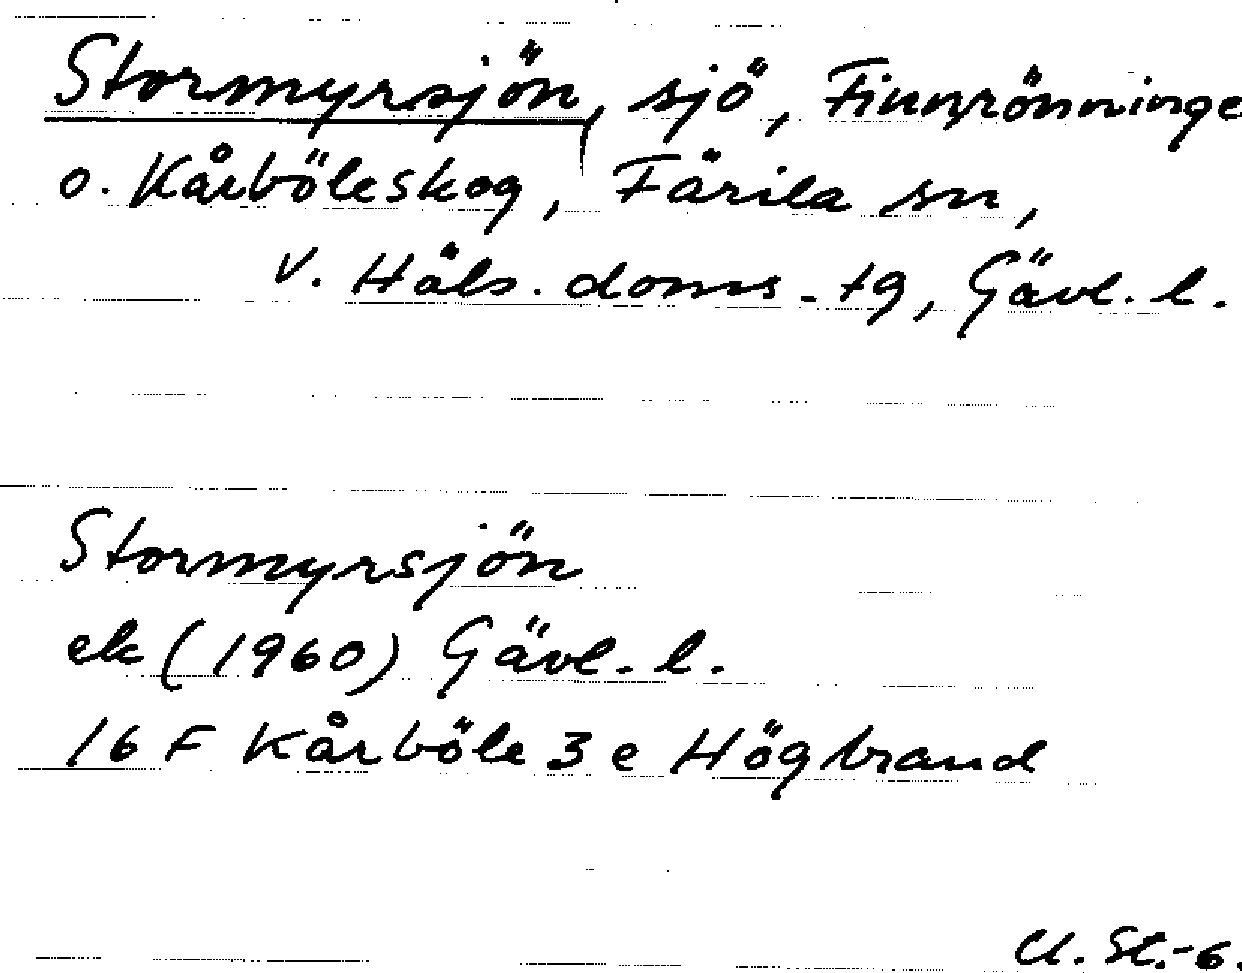 Stormyrsjön, sjö, Finnrönninge
o. Kårböleskog, Färila sn,
v. Häls. doms.-tg, Gävl. l.
Stormyrsjön
ek (1960) Gävl. l.
16 F Kårböle 3 e Högbrand
Cl. St.-6.